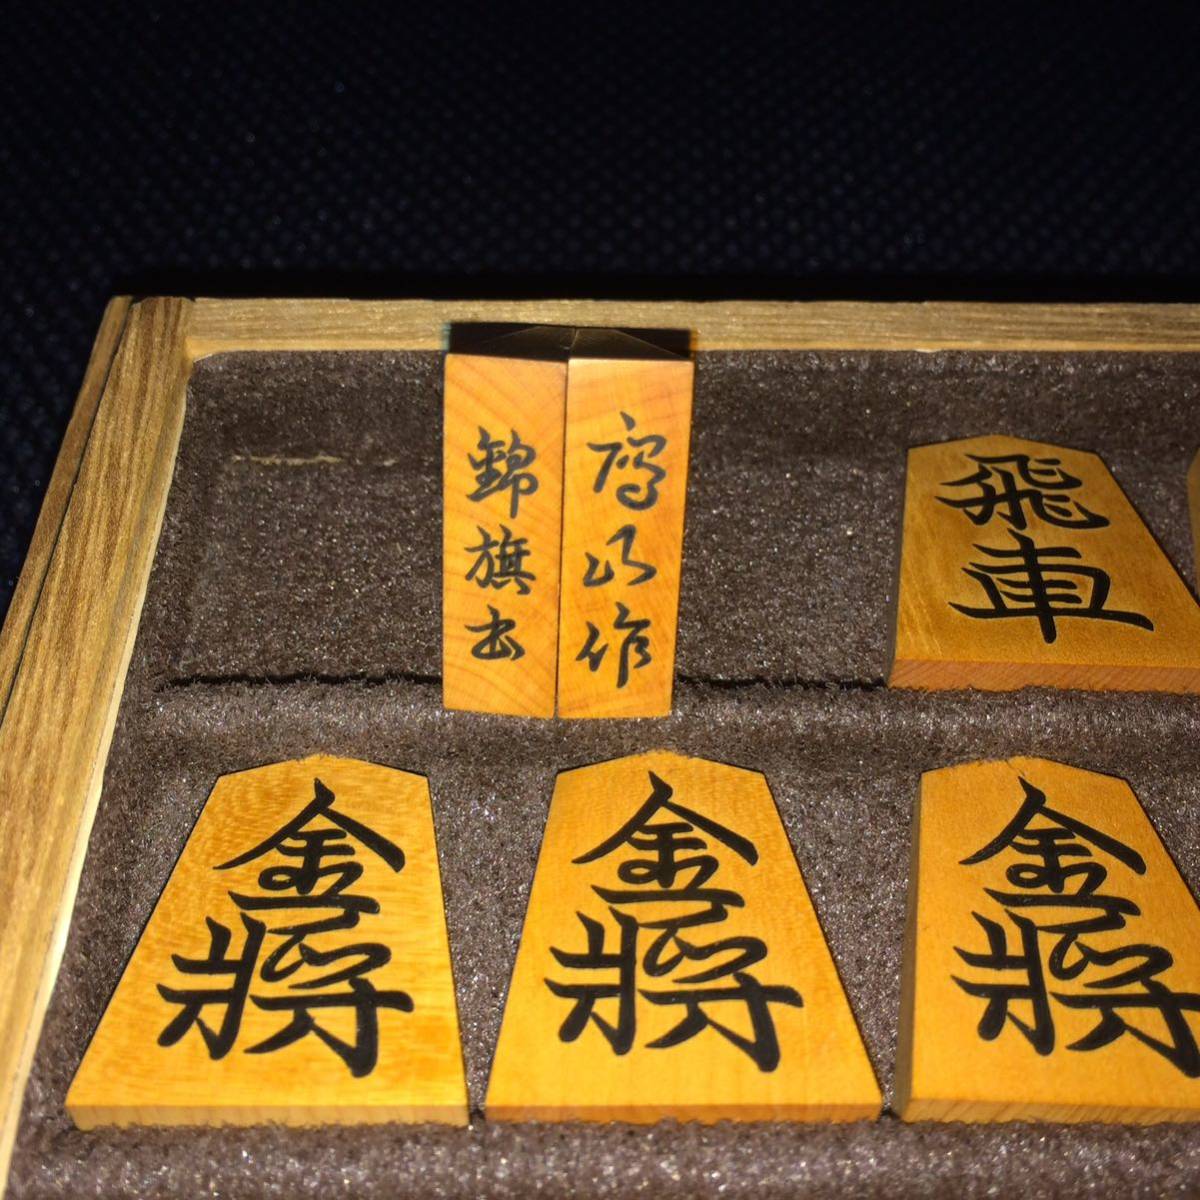 錦旗書
山作
飛車
金將
金將
金將